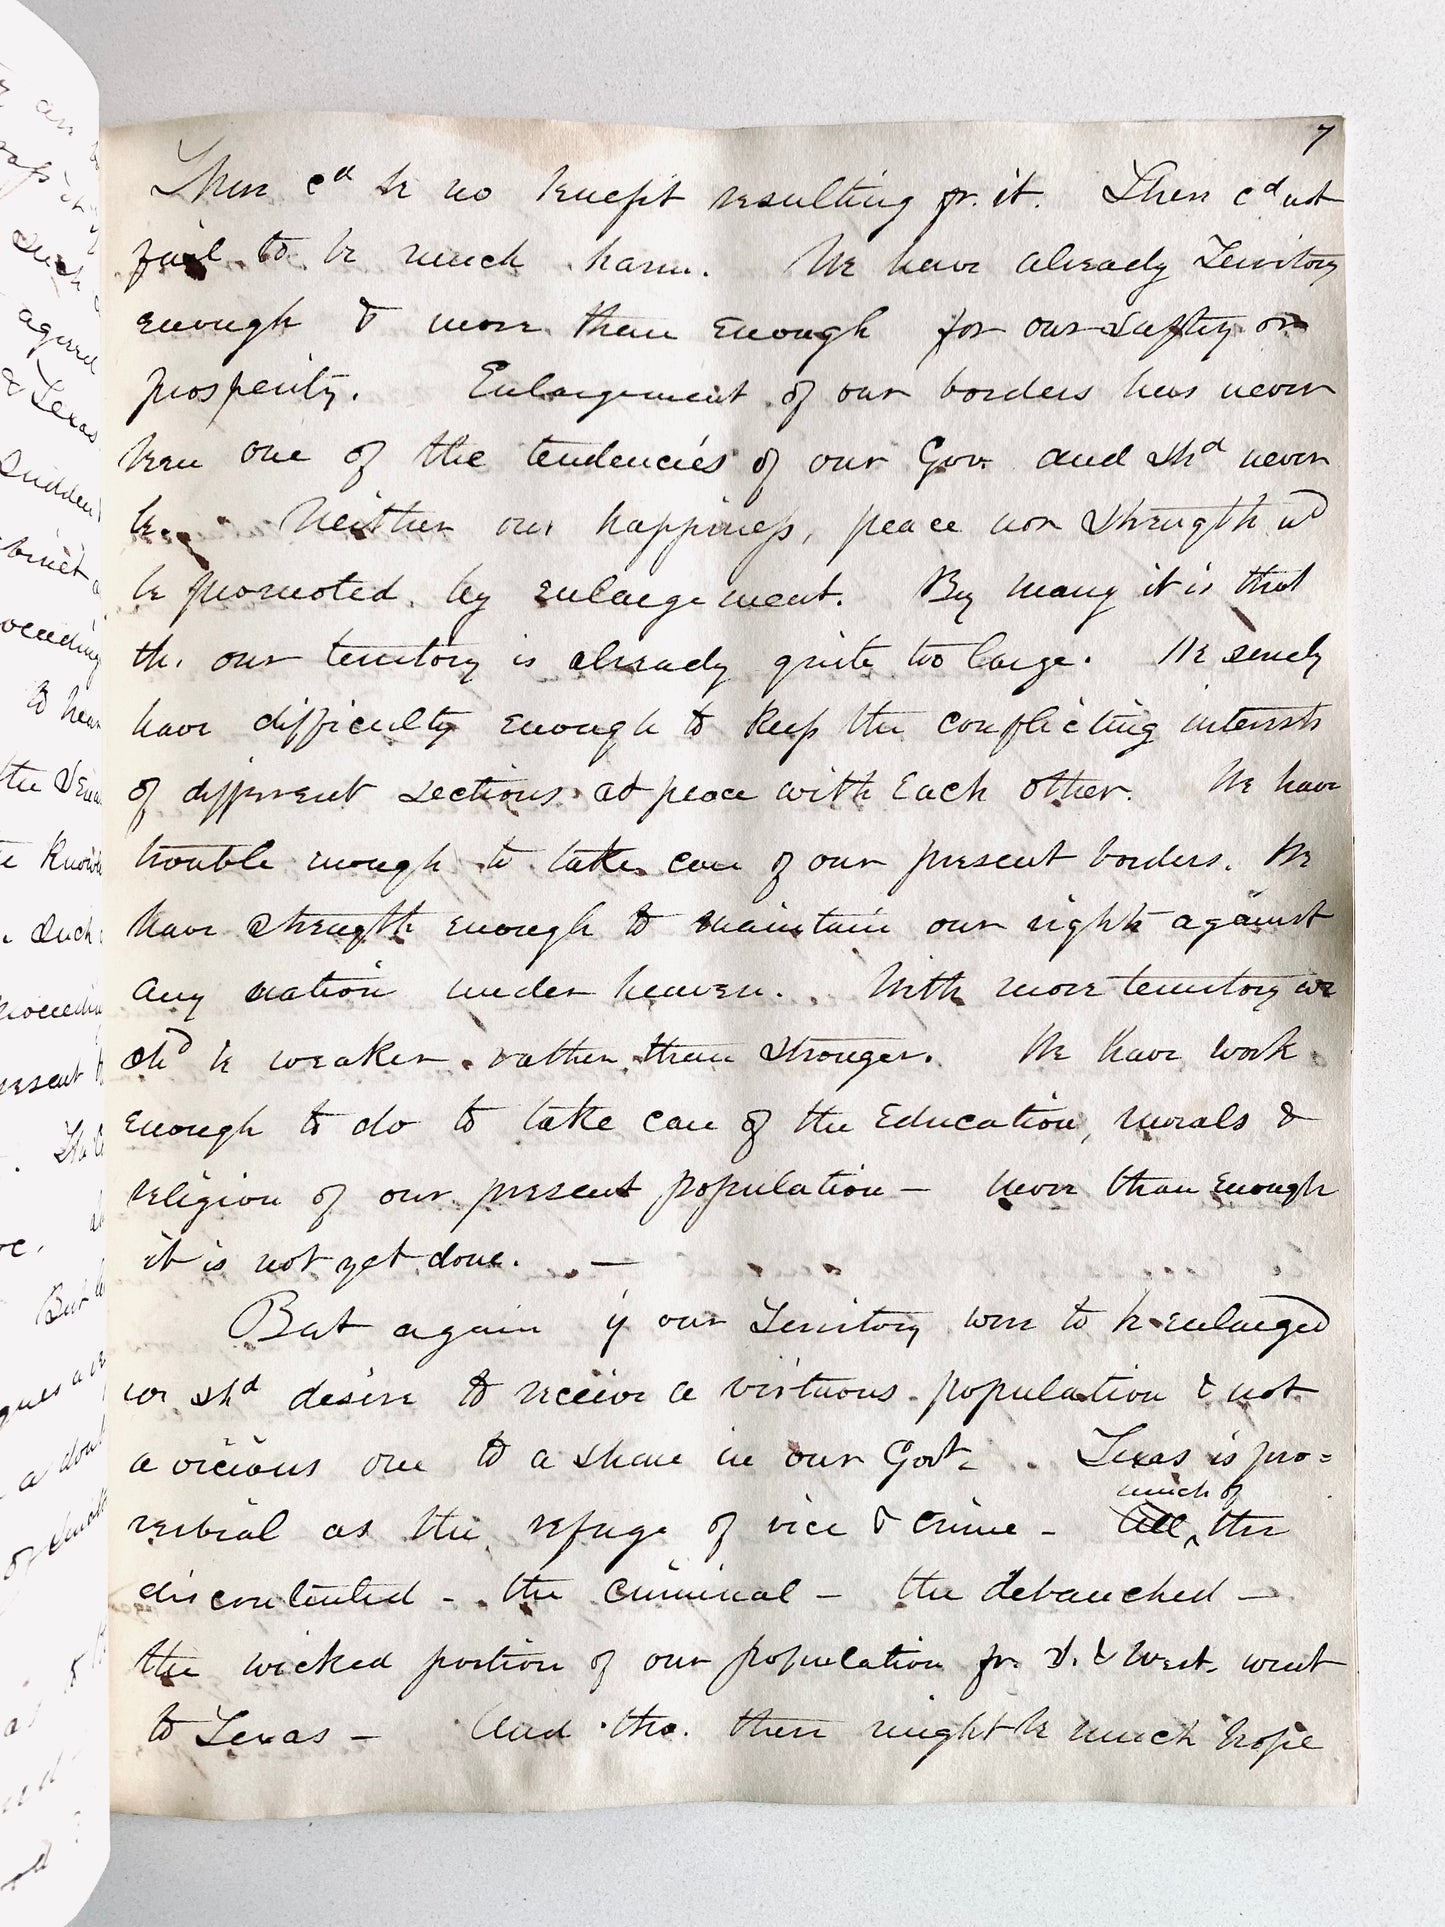 7
There cd be no benefit resulting fr. it. There cd not
fail to be much harm. We have already Territory
enough & more than enough for our safty or
prosperity. Enlargement of our borders has never
been one of the tendencies of our Gov. and shd never
be. Neither our happiness, peace nor strength wd
be promoted by enlargement. By many it is that
th. our territory is already quite too large. We
have difficulty enough to keep the conflicting interests
of different sections at peace with Each other. We have
trouble enough to take care of our present borders. We
have strength enough to maintain our rights against
any nation under heaven. With more territory we
shd be weaker rather than stronger. We have work
enough to do to take care of the Education, morals &
religion of our present population — more than enough
it is not yet done. —
But again if our Territory were to be enlarged
we shd desire to receive a virtuous population & not
a vicious one to a share in our Govt. Texas is pro=
verbial as the refuge of vice & crime - All much of the
discontented - the criminal - the debauched -
the wicked portion of our population fr. S. & West. went
to Texas - And tho. there might be much hope